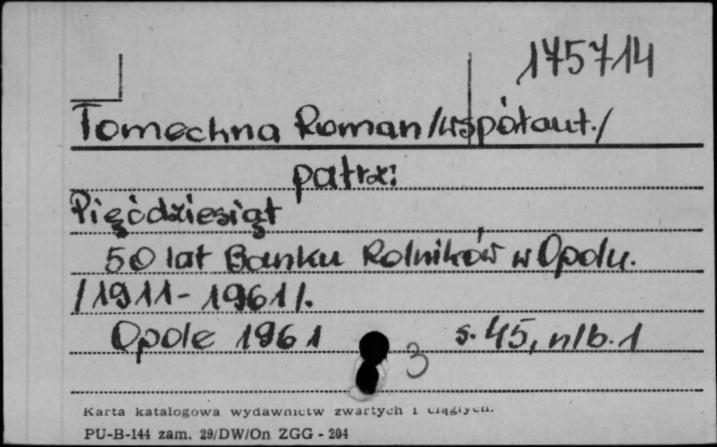 175714
Tomechna Roman /współaut./
patrz:
Pięćdziesiąt
50 lat Banku Rolników w Opolu.
/1911-1961/.
Opole 1961 s. 45, nlb. 1
3
Karta katalogowa wydawnictw zwartych i ciągłych.
PU-B-144 zam. 29/DW/On ZGG - 204